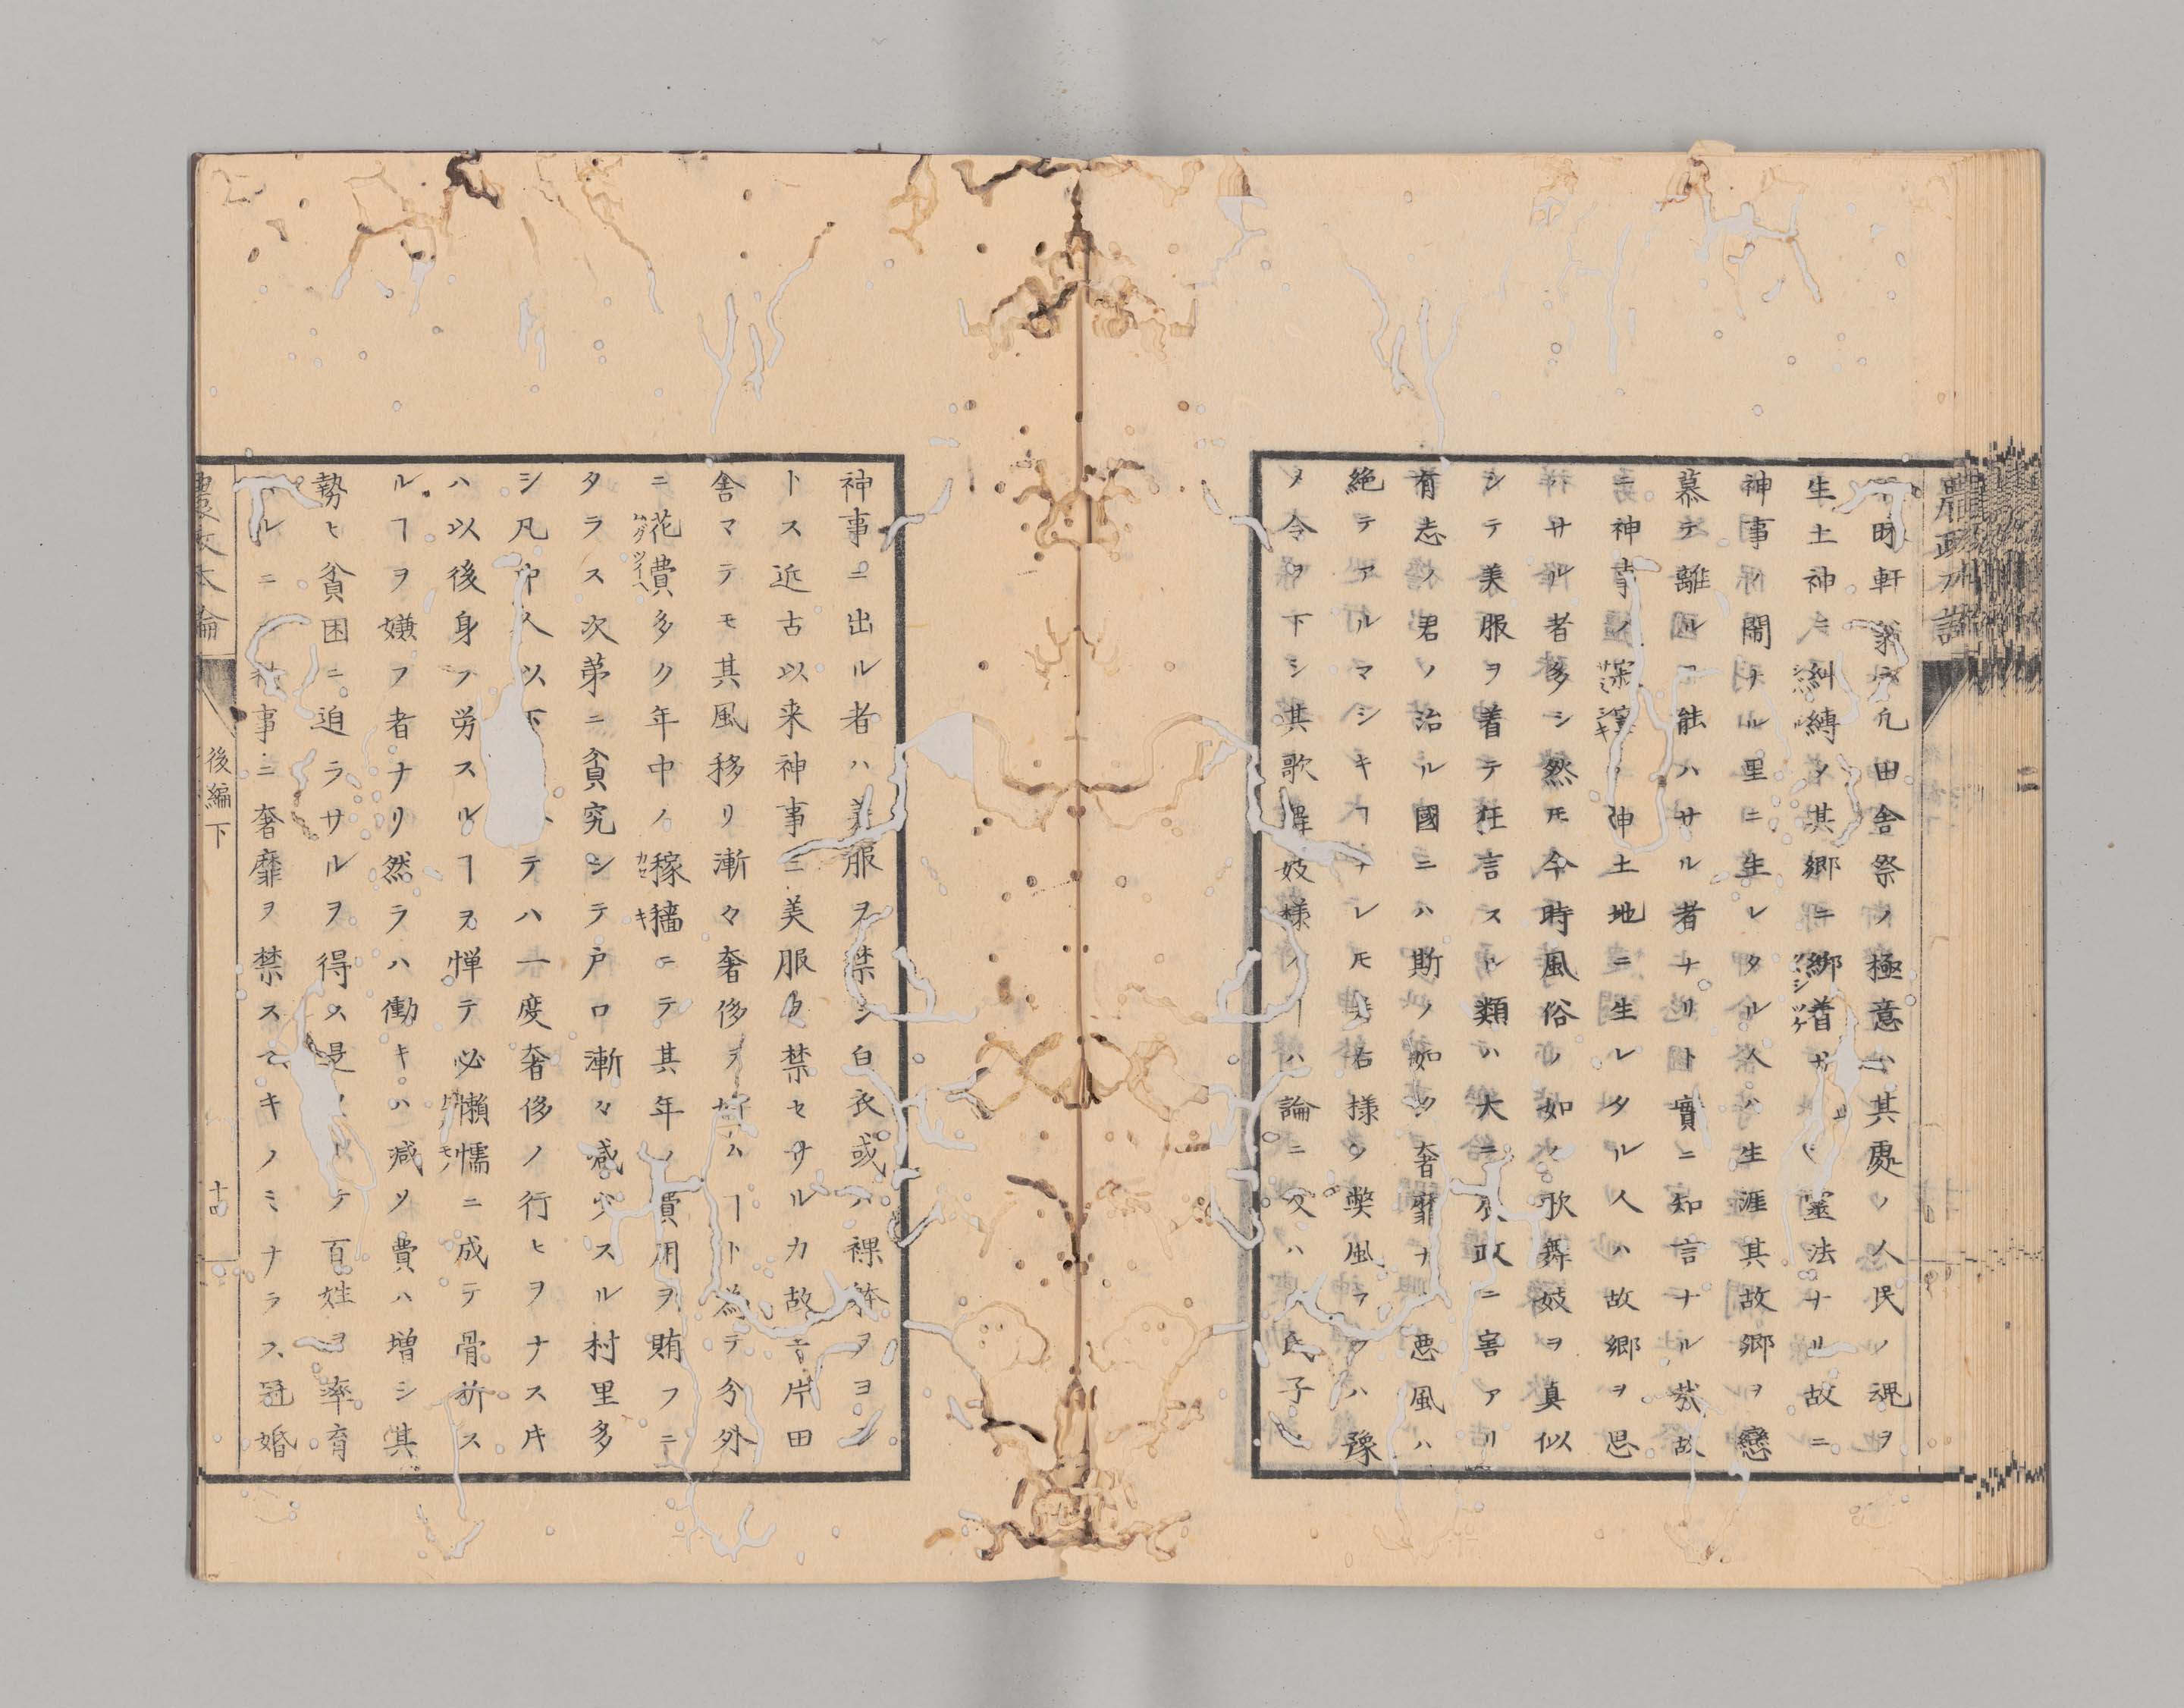 昉軒翁 凡田舎祭ノ極意ハ其處ノ人民ノ魂ヲ
生土神ニ糾縛メ其郷ニ綁着 靈法ナル故ニ
神事ノ閙 ナル里ニ生レタル人ハ生涯其故郷ヲ戀
慕テ離ルヿ能ハサル者ナリト實ニ知言ナル哉故
ニ神事ノ 神土地ニ生レタル人ハ故郷ヲ思
ハサル者多シ然𪜈今時風俗ノ如ク歌舞妓ヲ真似
シテ美服ヲ着テ狂言スル類ハ大ニ農政ニ害アリ
有志ノ君ノ治ル國ニハ斯ノ如ク奢靡ナル悪風ハ
絶テアルマシキヿナレ𪜈 右様ノ獘風アラハ豫
メ令ヲ下シ其歌舞妓様ノヿハ論ニ及ハ 氏子ノ
神事ニ出ル者ハ美服ヲ禁シ白衣或ハ裸躰ヲヨシ
トス近古以来神事ニ美服ヲ禁セサルカ故ニ片田
舎マテモ其風移リ漸々奢侈ヲ好ムヿト為テ分外
ニ花費多ク年中ノ稼穡ニテ其年ノ費用ヲ賄フニ
ムダツイヘ
カセキ
タラス次第ニ貧究シテ戸口漸々减少スル村里多
シ凡中人以下 テハ一度奢侈ノ行ヒヲナス片
ハ以後身ヲ労スルヿヲ憚テ必懶懦ニ成テ骨折ス
ルヿヲ嫌フ者ナリ然ラハ働キハ减ソ費ハ増シ其
勢ヒ貧困ニ迫ラサルヲ得ス是 テ百姓ヲ率育
ルニ 事ニ奢靡ヲ禁スヘキノミナラス冠婚
農政本論
後編下
十四